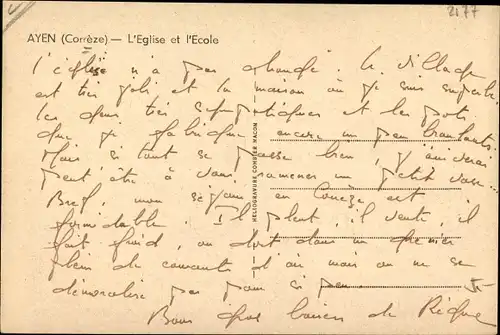 2177
AYEN (Corrèze) — L'Eglise et l'Ecole
l'église n'a pas changé. Le village
est très joli et la maison où je suis superbe
les gens très sympathiques et les pots
que je fabrique encore un peu branlants.
Mais si tout se passe bien, j'arriverai
peut être à vous ramener un petit vase...
Bref, mon séjour en Corrèze est
formidable. Il pleut, il vente, il
fait froid, on dort dans un grenier
plein de courants d'air mais on ne se
démoralise pas pour si peu.
Bons gros baisers de
HELIOGRAVURE COMBIER MACON